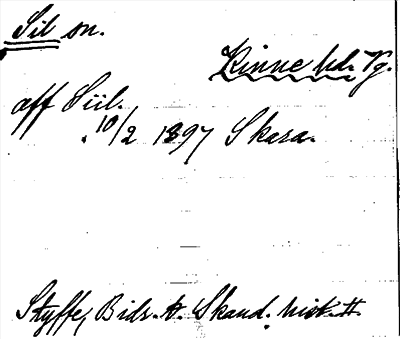 Sil sn.
Kinne hd. Vg.
aff Siil.
10/2 1397 Skara.
Styffe, Bidr. t. Skand. hist. II